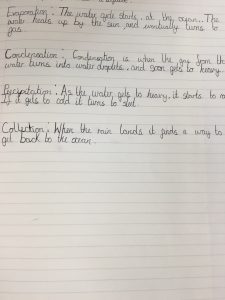 Evaporation: The water cycle starts at the ocean. The
water heats up by the sun and eventually turns to
gas.
Condensation: Condensation is when the gas from the
water turns into water droplets, and soon gets to heavy.
Precipitation: As the water gets to heavy, it starts to
If it gets to cold it turns to slet.
Collection: When the rain lands it finds a way to
get back to the ocean.